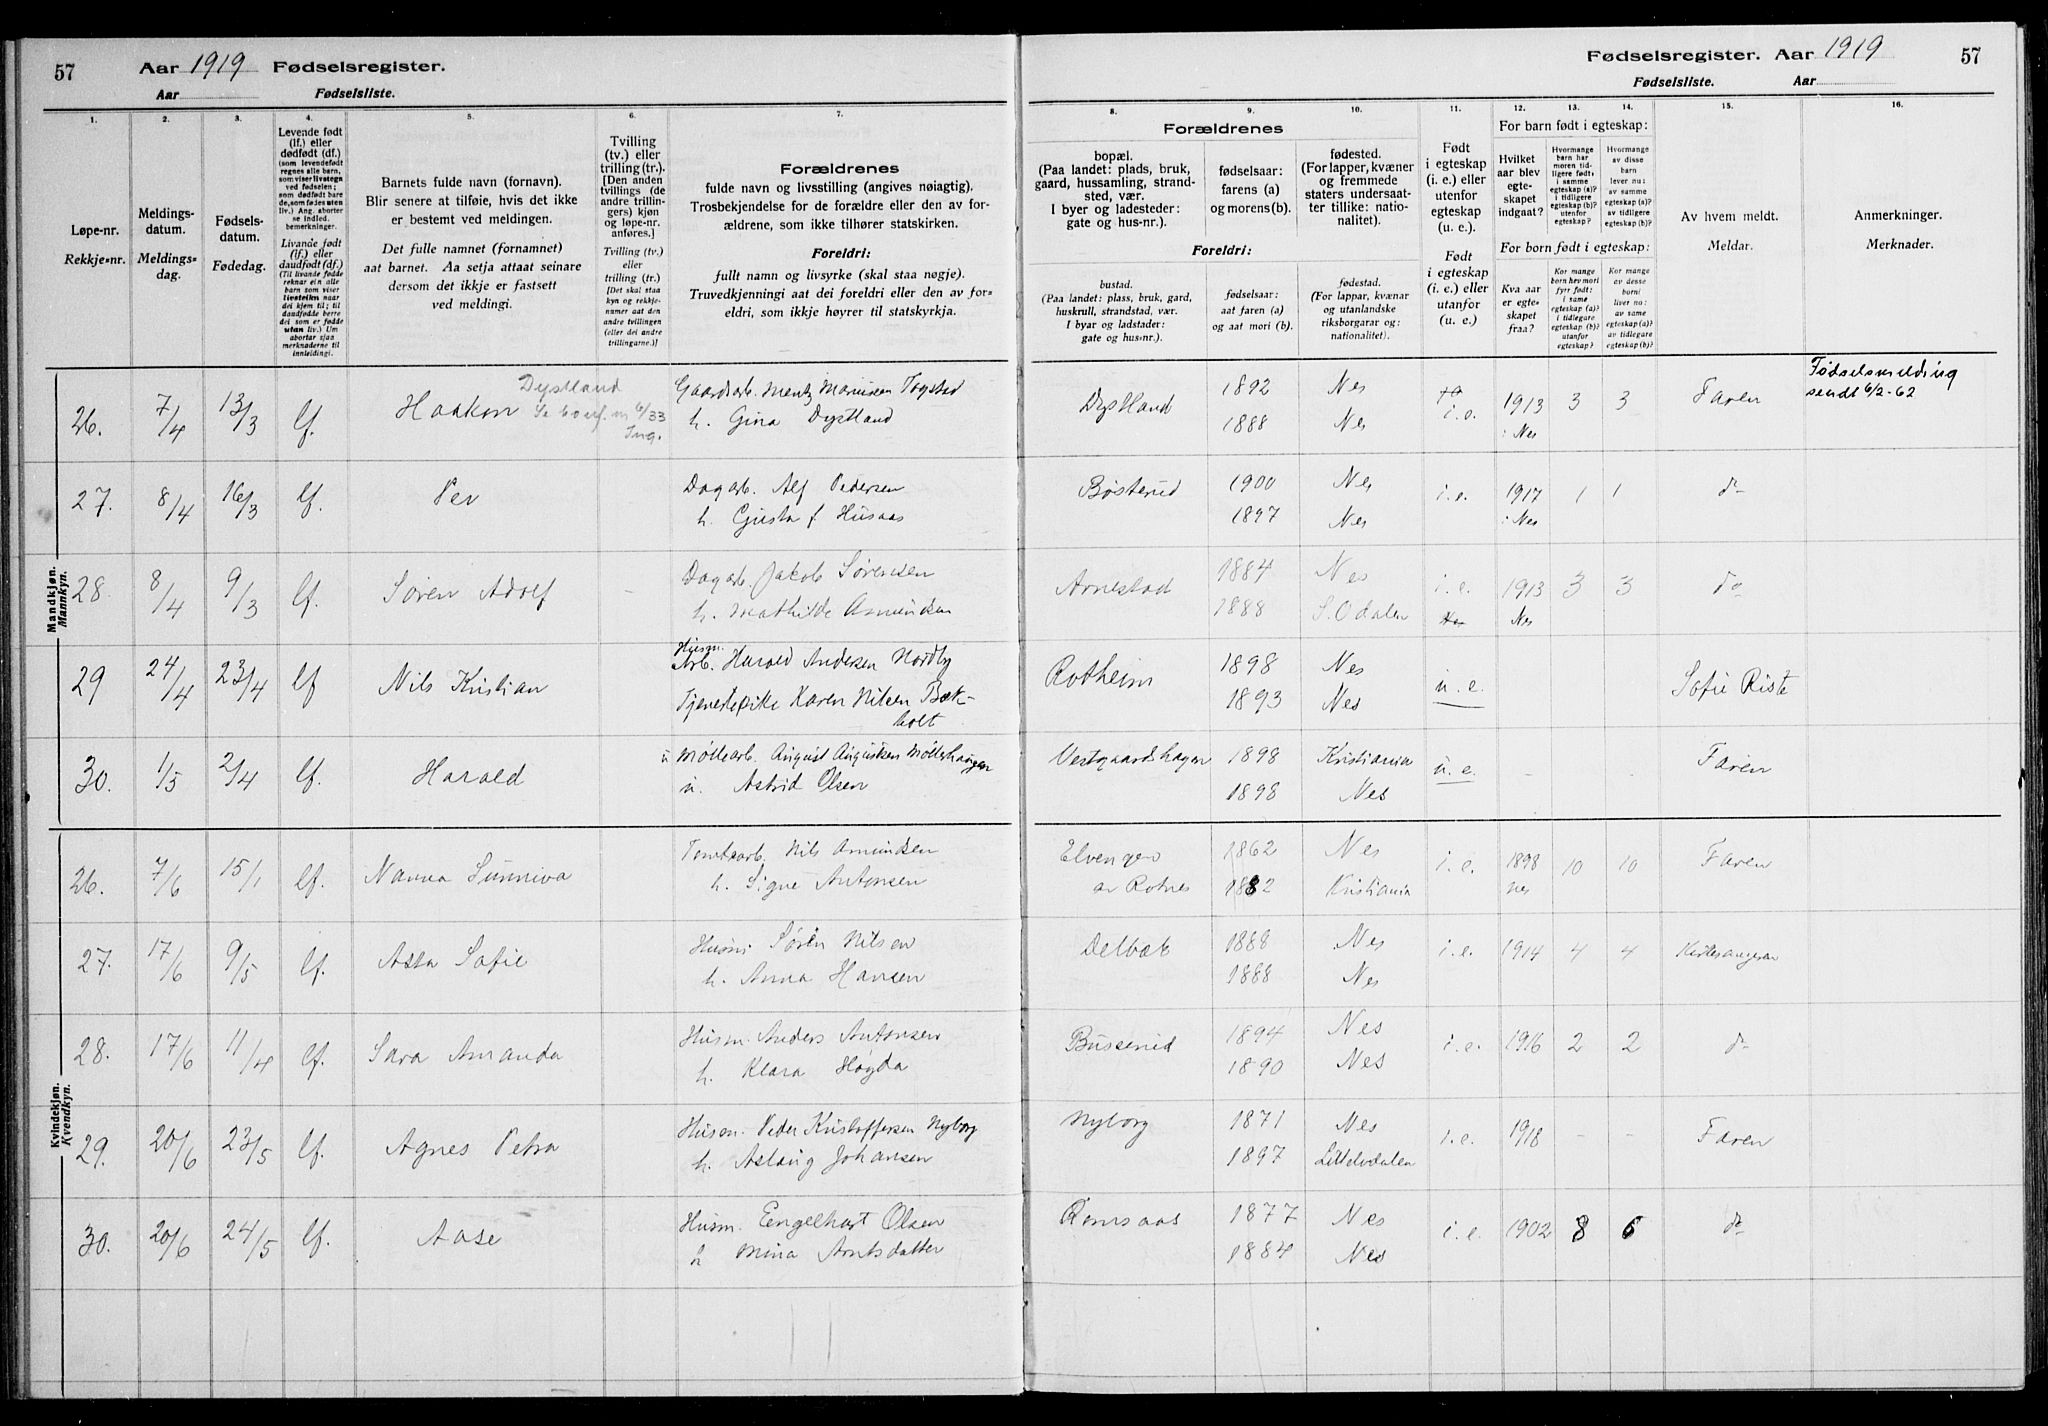 57 Aar 1919 Fødselsregister.
Aar Fødselsliste.
1. 2. 3. 4. 5. 6. 7.
Løpe-nr.
Rekkje-nr.
Meldings-
datum.
Meldings-
dag.
Fødsels-
datum.
Fødedag.
Levende født
(lf.) eller
dødfødt (df.)
(som levendefødt
regnes alle barn,
som viser livstegn
ved fødselen;
som dødfødt bare
de, som fødes uten
liv.) Ang. aborter
se indled.
bemerkninger.
Livande født
(lf.) eller
daudfødt (df.)
(Til livande fødde
reknar ein alle
barn som viser
livsteikn naar
dei kjem til; til
daudfødde berre
dei som er fødde
utan liv.) Um
abortar sjaa
merknaderne til
innleidingi.
Barnets fulde navn (fornavn).
Blir senere at tilføie, hvis det ikke
er bestemt ved meldingen.
Det fulle namnet (fornamnet)
aat barnet. Aa setja attaat seinare
dersom det ikkje er fastsett
ved meldingi.
Tvilling
(tv.) eller
trilling (tr.).
[Den anden
tvillings (de
andre trillin-
gers) kjøn
og løpe-nr.
anføres.]
Tvilling (tv.)
eller
trilling (tr.)
[Det skal staa
kyn og rekkje-
numer aat den
andre tvillingen
(eller dei andre
trillingarne.)]
Forældrenes
fulde navn og livsstilling (angives nøiagtig).
Trosbekjendelse for de forældre eller den av for-
ældrene, som ikke tilhører statskirken.
Foreldri:
fullt namn og livsyrke (skal staa nøgje).
Truvedkjenningi aat dei foreldri eller den av for-
eldri, som ikkje høyrer til statskyrkja.
Mandkjøn.
Mannkyn.
26. 7/4 13/3 lf. Haakon Dystland Gaardarb. Mentz Mariusen Togstad
h. Gina Dystland
27. 8/4 16/3 lf. Per Dagarb. Alf Pedersen
h. Gjusta f. Husaas
28. 8/4 9/3 lf. Søren Adolf - Dagarb. Jakob Sørensen
h. Mathilde Amundsen
29 24/4 23/4 lf Nils Kristian Husm.
Arb. Harald Andersen Nordby
Tjenestepike Karen Nilsen Bæk-
holt
30. 1/5 2/4 lf. Harald u Møllearb. August Augustsen Møllerhaugen
u. Astrid Olsen
Kvindekjøn.
Kvendkyn.
26. 7/6 15/1 lf. Nanna Sunniva Tomtearb. Nils Amundsen
h. Signe Antonsen
27. 17/6 9/5 lf. Asta Sofie Husm. Søren Nilsen
h. Anna Hansen
28. 17/6 11/4 lf. Sara Amanda Husm. Anders Antonsen
h. Klara Høgda
29. 20/6 23/5 lf. Agnes Petra Husm. Peder Kristoffersen Nyborg
h. Aslaug Johansen
30. 20/6 24/5 lf. Aase Husm. Engelhart Olsen
h Mina Arntsdatter
Fødselsregister. Aar 1919 57
Fødselsliste. Aar
8. 9. 10. 11. 12. 13. 14. 15. 16.
Forældrenes
bopæl.
(Paa landet: plads, bruk,
gaard, hussamling, strand-
sted, vær.
I byer og ladesteder:
gate og hus-nr.).
fødselsaar:
farens (a)
og morens (b).
fødested.
(For lapper, kvæner
og fremmede
staters undersaat-
ter tillike: natio-
nalitet).
Foreldri:
bustad.
(Paa landet: plass, bruk, gard,
huskrull, strandstad, vær.
I byar og ladstader:
gate og hus-nr.).
fødselsaar:
aat faren (a)
og aat mori (b).
fødestad.
(For lappar, kvænar
og utanlandske
riksborgarar og:
nationalitet).
Født
i egteskap
(i. e.) eller
utenfor
egteskap
(u. e.).
Født
i egteskap
(i. e.) eller
utanfor
(u. e.).
For barn født i egteskap:
Hvilket
aar blev
egte-
skapet
indgaat?
Hvormange
barn har
moren tid-
ligere født:
i samme
egteskap (a)?
i tidligere
egteskap (b)?
utenfor
egteskap?
Hvormange
av disse
barn
lever nu:
av samme
egteskap (a)?
av tidligere
egteskap (b)?
For born født i egteskap:
Kva aar
er egte-
skapet
fraa?
Kor mange
born hev mori
fyrr født:
i same
egteskap (a)?
i tidlegare
egteskap (b)?
utanfor
egteskap?
Kor mange
av desse
borni
liver no:
av same
egteskap (a)?
av tidlegare
egteskap (b)?
Av hvem meldt.
Meldar.
Anmerkninger.
Merknader.
Dystland 1892 Nes i.e. 1913 3 3 Faren Fødselsmelding
1888 Nes i Nes sendt 6/2-62
Bøsterud 1900 Nes i.e. 1917 1 1 do
1897 Nes i Nes
Arnestad 1884 Nes i.e. 1913 3 3 do
1888 S. Odalen Nes
Rotheim 1898 Nes u.e. Sofie Riste
1893 Nes
Vestgaardshagen 1898 Kristiania u.e. - - - Faren
1898 Nes
Elvengen 1862 Nes i.e. 1898 10 10 Faren
av Rotnes 1882 Kristiania nes
Delbæk 1888 Nes i.e. 1914 4 4 Kirkesangeren
1888 Nes
Busserud 1894 Nes i.e. 1916 2 2 do
1890 Nes
Nyborg 1871 Nes i.e. 1918 - - Faren
1897
Remsaas 1877 Nes i.e. 1902 8 6 do
1884 Nes